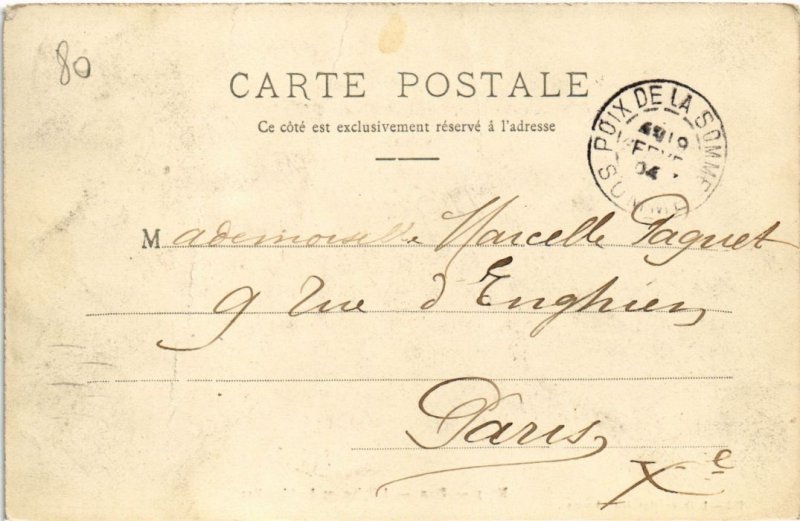 80
CARTE POSTALE
Ce côté est exclusivement réservé à l'adresse
POIX DE LA SOMME
SOMME
04
Mademoiselle Marcelle Paquet
9 rue d'Enghien
Paris
Xe